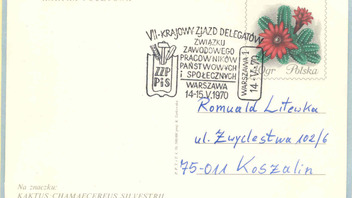 VII-KRAJOWY ZJAZD DELEGATÓW
ZWIĄZKU
ZAWODOWEGO
PRACOWNIKÓW
PAŃSTWOWYCH
I SPOŁECZNYCH
WARSZAWA
14-15.V.1970
ZZP
PiS
WARSZAWA 1
14.V.70
gr Polska
Romuald Litewka
ul. Zwycięstwa 102/6
75-011 Koszalin
Na znaczku:
KAKTUS CHAMAECEREUS SILVESTRII